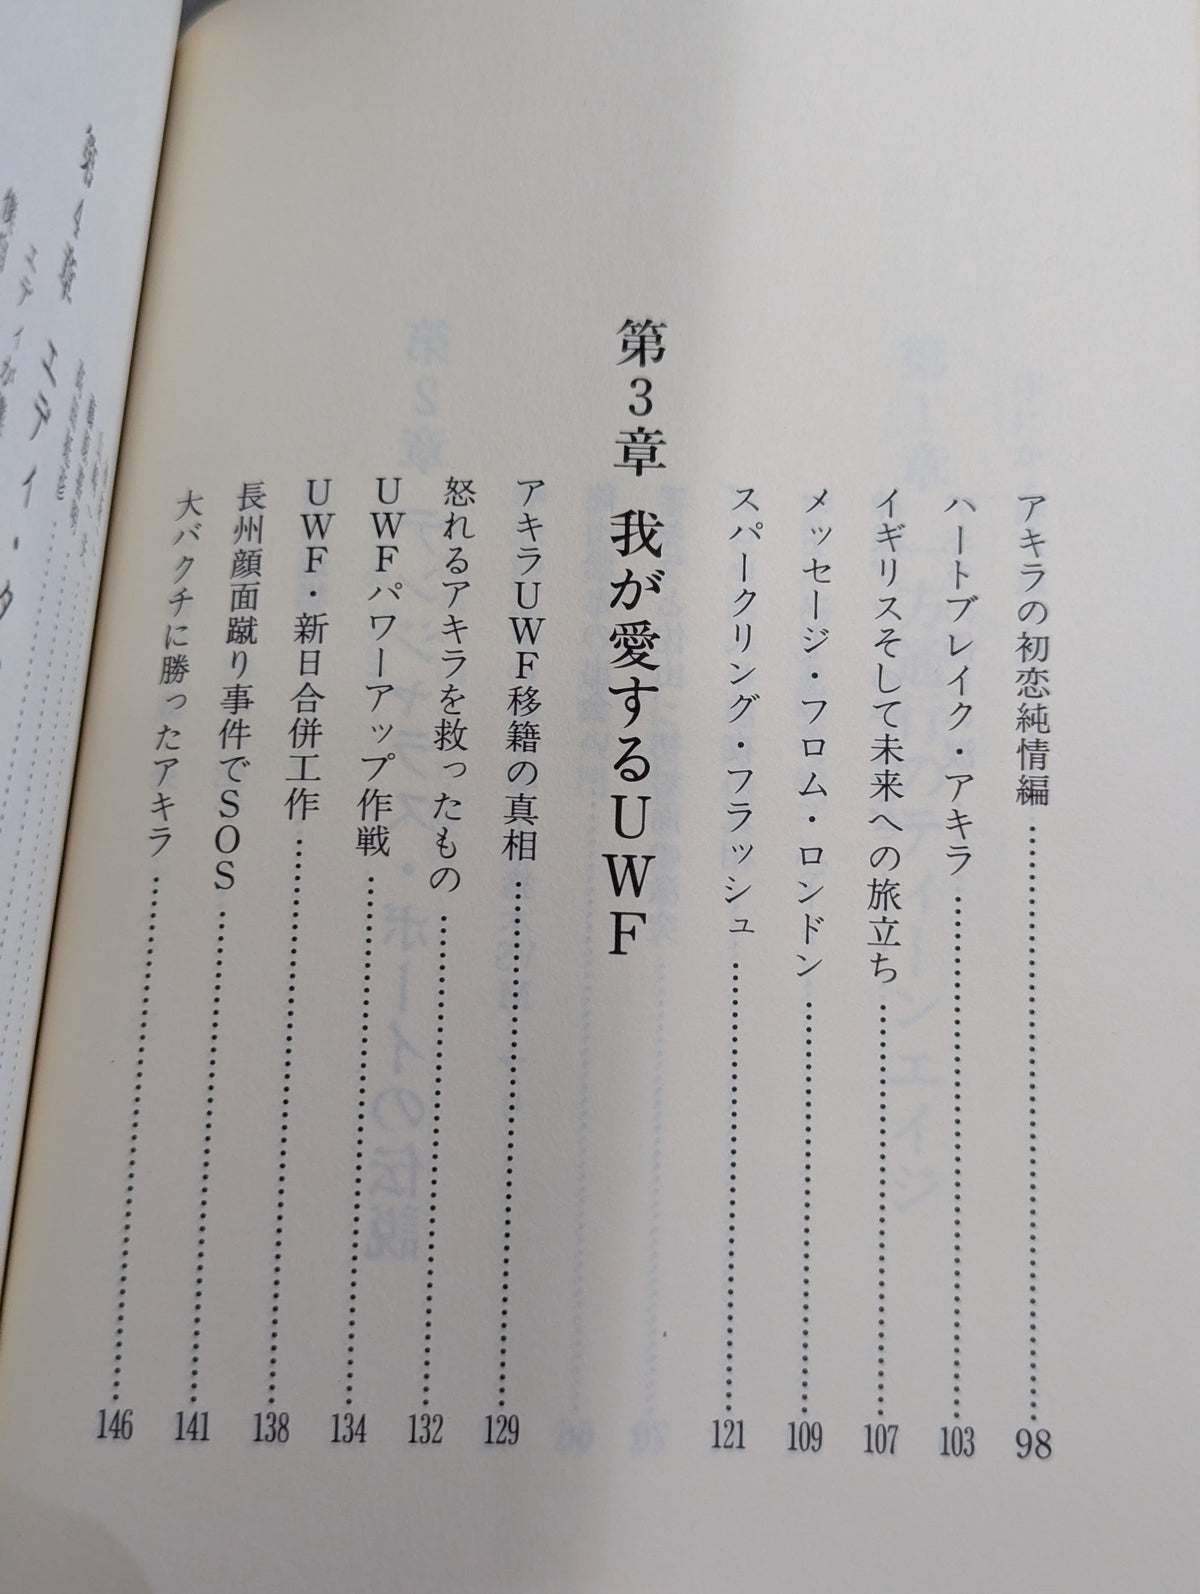 アキラの初恋純情編……98
ハートブレイク・アキラ……103
イギリスそして未来への旅立ち……107
メッセージ・フロム・ロンドン……109
スパークリング・フラッシュ……121
第3章 我が愛するUWF
アキラUWF移籍の真相……129
怒れるアキラを救ったもの……132
UWFパワーアップ作戦……134
UWF・新日合併工作……138
長州顔面蹴り事件でSOS……141
大バクチに勝ったアキラ……146